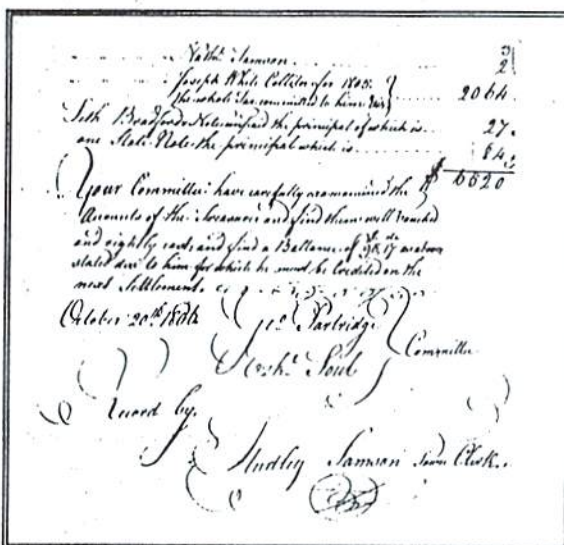 Nathl. Samson ... 3
2
Joseph White Collector for 1803
the whole Tax committed to him viz ... 2064.
Seth Bradfords Note the principal of which is ... 27.
one State Note the principal which is ... 84.
$ 6620
Your Committee have carefully examined the
Accounts of the Treasurer and find them well vouched
and rightly cast and find a Ballance of 17 as above
stated due to him for which he must be Credited on the
next Settlement.
October 20th
Partridge
Soul
Committee
Record by.
Samson Town Clerk.